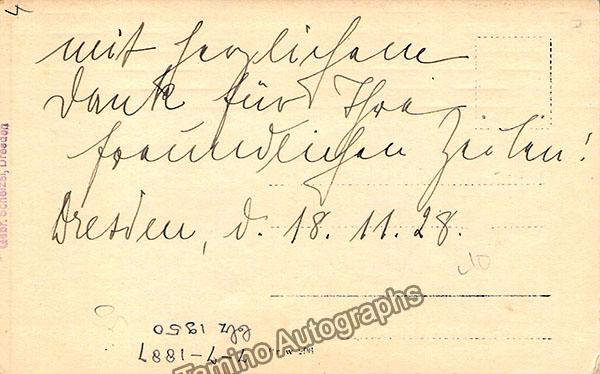 mit herzlichem
Dank für Ihre
freundlichen Zeilen!
Dresden, d. 18. 11. 28.
Tamino Autographs
7-7-1887
1950
Dresden